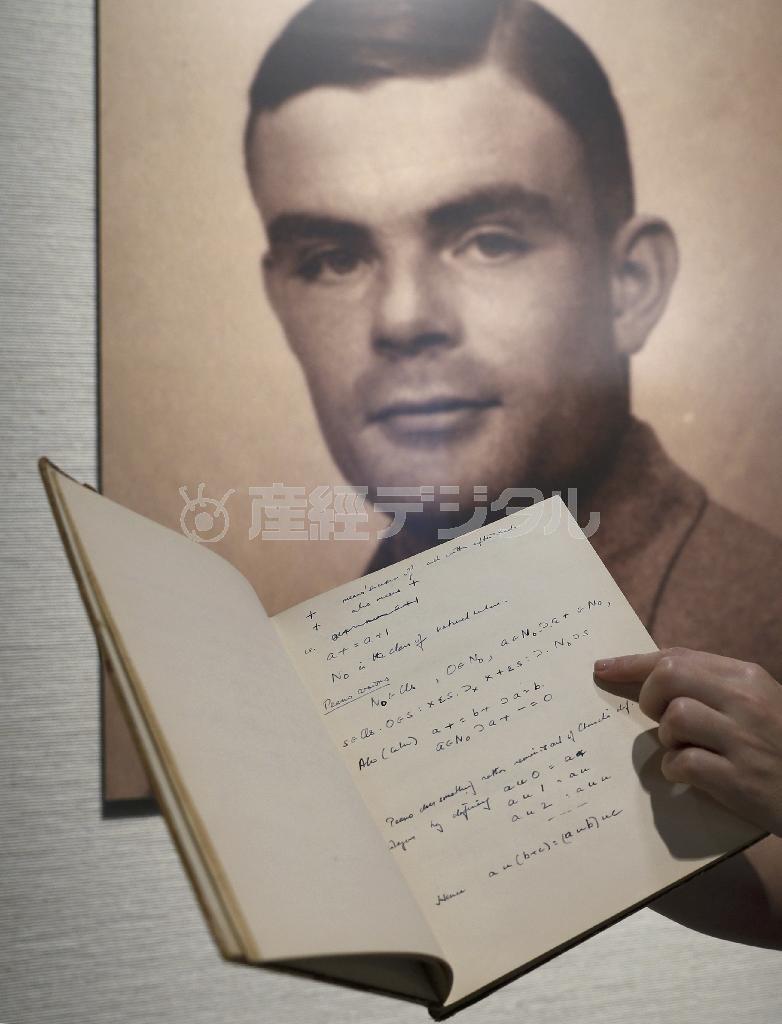 産経デジタル
+ means addition of unit with afterwards
+ also means +
a+ = a+1
N₀ is the class of natural numbers.
Peano axioms
N₀ ε Cls, 0 ε N₀, a ε N₀ ⊃ a+ ε N₀,
s ε Cls. 0 ε s : x ε s. ⊃ₓ x+ ε s : ⊃. N₀ ⊃ s
Also (later) a+ = b+ ⊃ a = b.
a ε N₀ ⊃ a+ − = 0
Peano does something rather reminiscent of Church's def.
by defining a u 0 = a
a u 1 = au
a u 2 = auu
Hence a u (b+c) = (a u b) u c